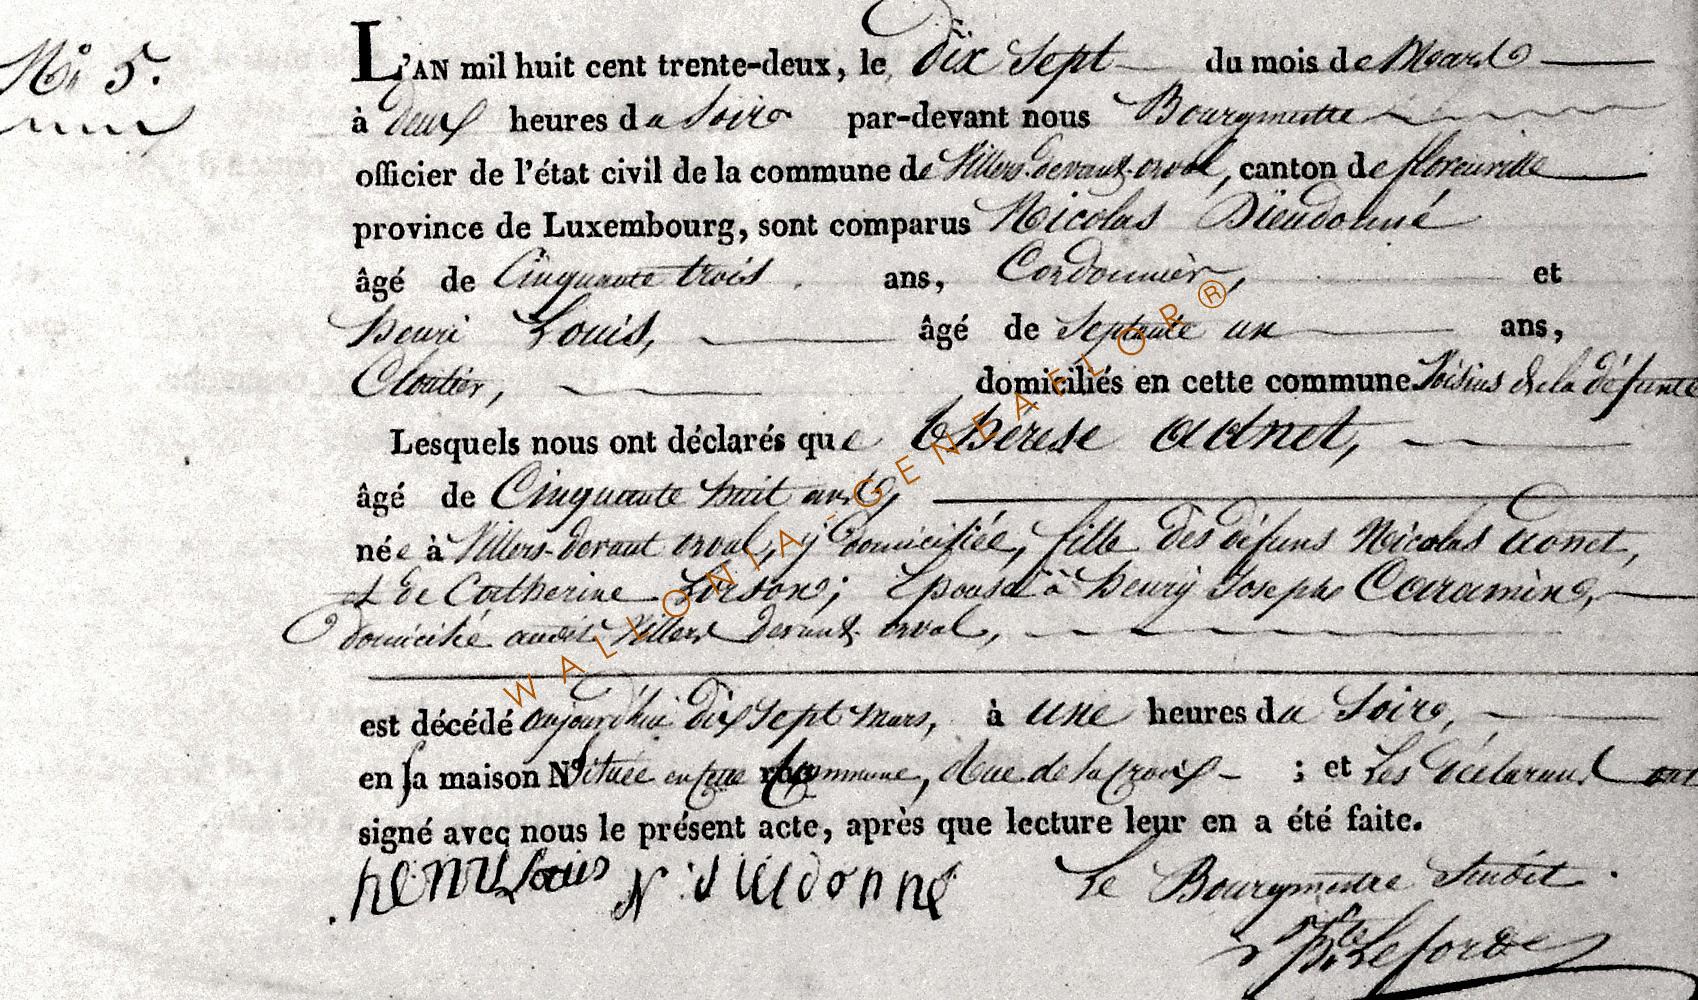 No 5.
L'AN mil huit cent trente-deux, le dix Sept du mois de Mars
à deux heures du Soir par-devant nous Bourgmestre
officier de l'état civil de la commune de Villers-devant-orval, canton de florenville
province de Luxembourg, sont comparus Nicolas Dieudonné
âgé de Cinquante trois ans, Cordonnier, et
henri Louis, âgé de Septante un ans,
Cloutier, domiciliés en cette commune Voisins de la défunte
Lesquels nous ont déclarés que thérese adnet,
âgé de Cinquante huit ans,
née à Villers-devant orval, y domiciliée, fille des défuns Nicolas adnet,
et de Catherine ; Epouse à henry Joseph
domicilié audit Villers devant orval,
est décédé aujourd'hui dix Sept mars, à une heures du Soir,
en sa maison No Située en cette commune, Rue de la Croix ; et Les déclarans ont
signé avec nous le présent acte, après que lecture leur en a été faite.
henry Louis N Dieudonné Le Bourgmestre Susdit
WALLONIA-GENEAFLOR®